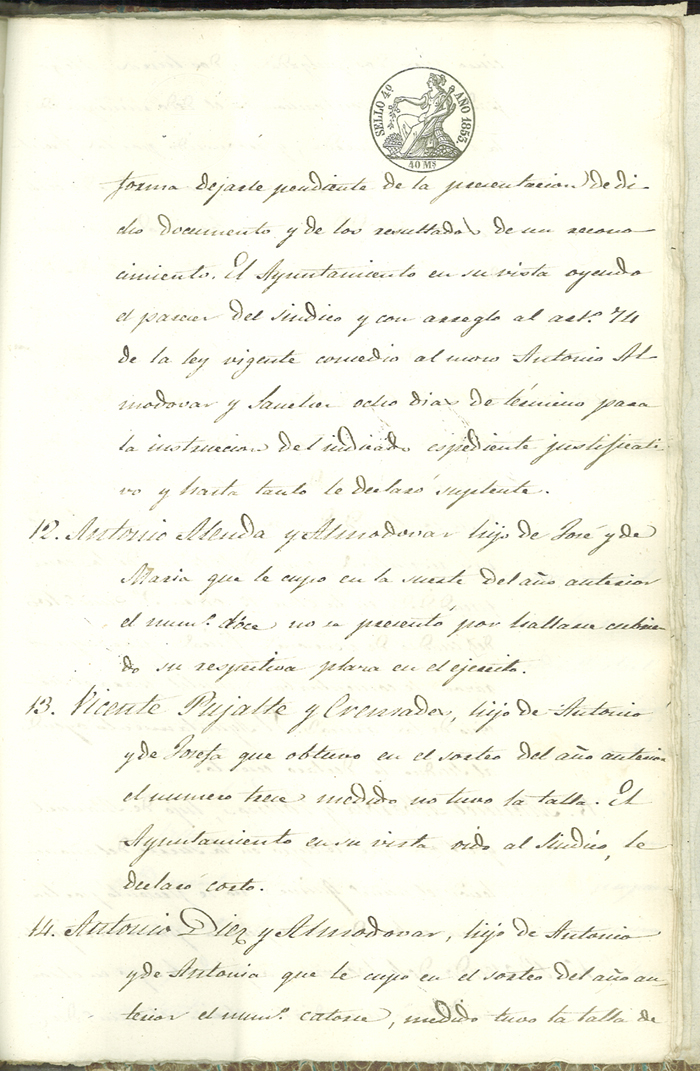 SELLO 4º AÑO 1855.
40 Ms
forma dejarle pendiente de la presentacion de di-
cho documento y de los resultados de un recono-
cimiento. El Ayuntamiento en su vista oyendo
el parecer del Sindico y con arreglo al artº 74
de la ley vigente concedio al mozo Antonio Al
modovar y Sanchez ocho dias de término para
la instruccion del indicado espediente justificati
vo y hasta tanto le declaró suplente.
12. Antonio Alenda y Almodovar hijo de José y de
Maria que le cupo en la suerte del año anterior
el numº dóce no se presentó por hallarse cubrien-
do su respectiva plaza en el ejercito.
13. Vicente Pujalte y Cremades, hijo de Antonio
y de Josefa que obtuvo en el sorteo del año anterior
el numero trece medido no tuvo la talla. El
Ayuntamiento en su vista oido al Sindico, le
declaró corto.
14. Antonio Diez y Almodovar, hijo de Antonio
y de Antonia que le cupo en el sorteo del año an-
terior el numº catorce, medido tuvo la talla de